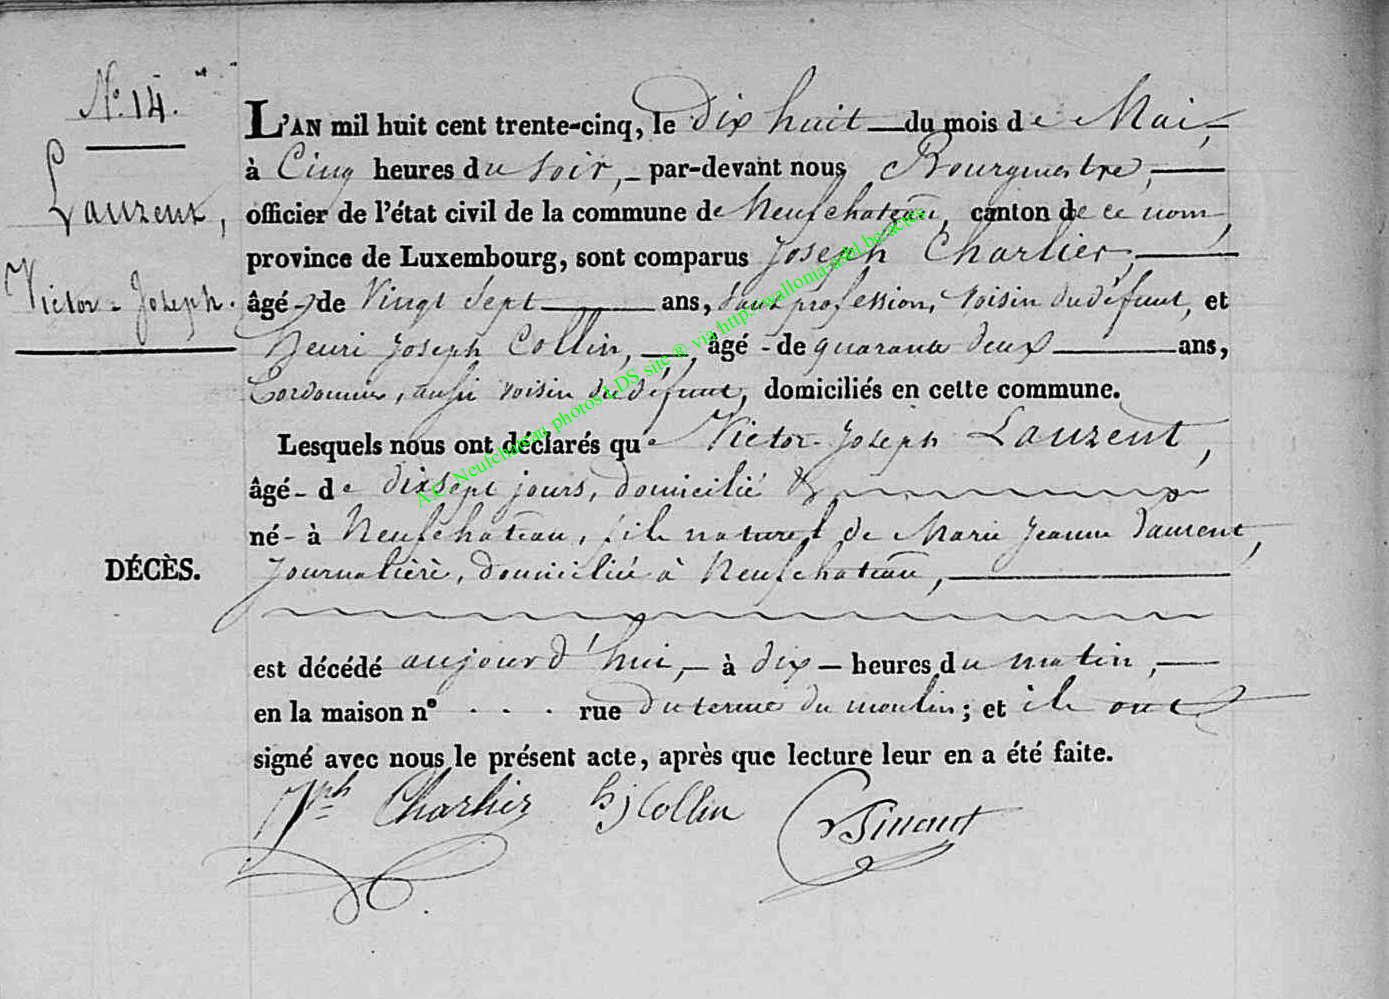 N.° 14.
L'AN mil huit cent trente-cinq, le dix huit du mois de Mai,
Laurent,
à Cinq heures du soir, par-devant nous Bourgmestre,
officier de l'état civil de la commune de Neufchateau, canton de ce nom,
Victor-Joseph.
province de Luxembourg, sont comparus Joseph Charlier,
âgé de Vingt Sept ans, sans profession, voisin du défunt, et
Henri Joseph Collin, âgé de quarante deux ans,
Cordonnier, aussi voisin du défunt, domiciliés en cette commune.
Lesquels nous ont déclarés que Victor-Joseph Laurent,
âgé de dixsept jours, domicilié &
né à Neufchateau, fils naturel de Marie Jeanne Laurent,
DÉCÈS.
Journalière, domiciliée à Neufchateau,
est décédé aujourd'hui, à dix heures du matin,
en la maison n° . . . rue du terme du moulin; et ils ont
signé avec nous le présent acte, après que lecture leur en a été faite.
Jph Charlier hj Collin
A.E. Neufchateau photos LDS site ® via http://wallonia-asbl.be/actes